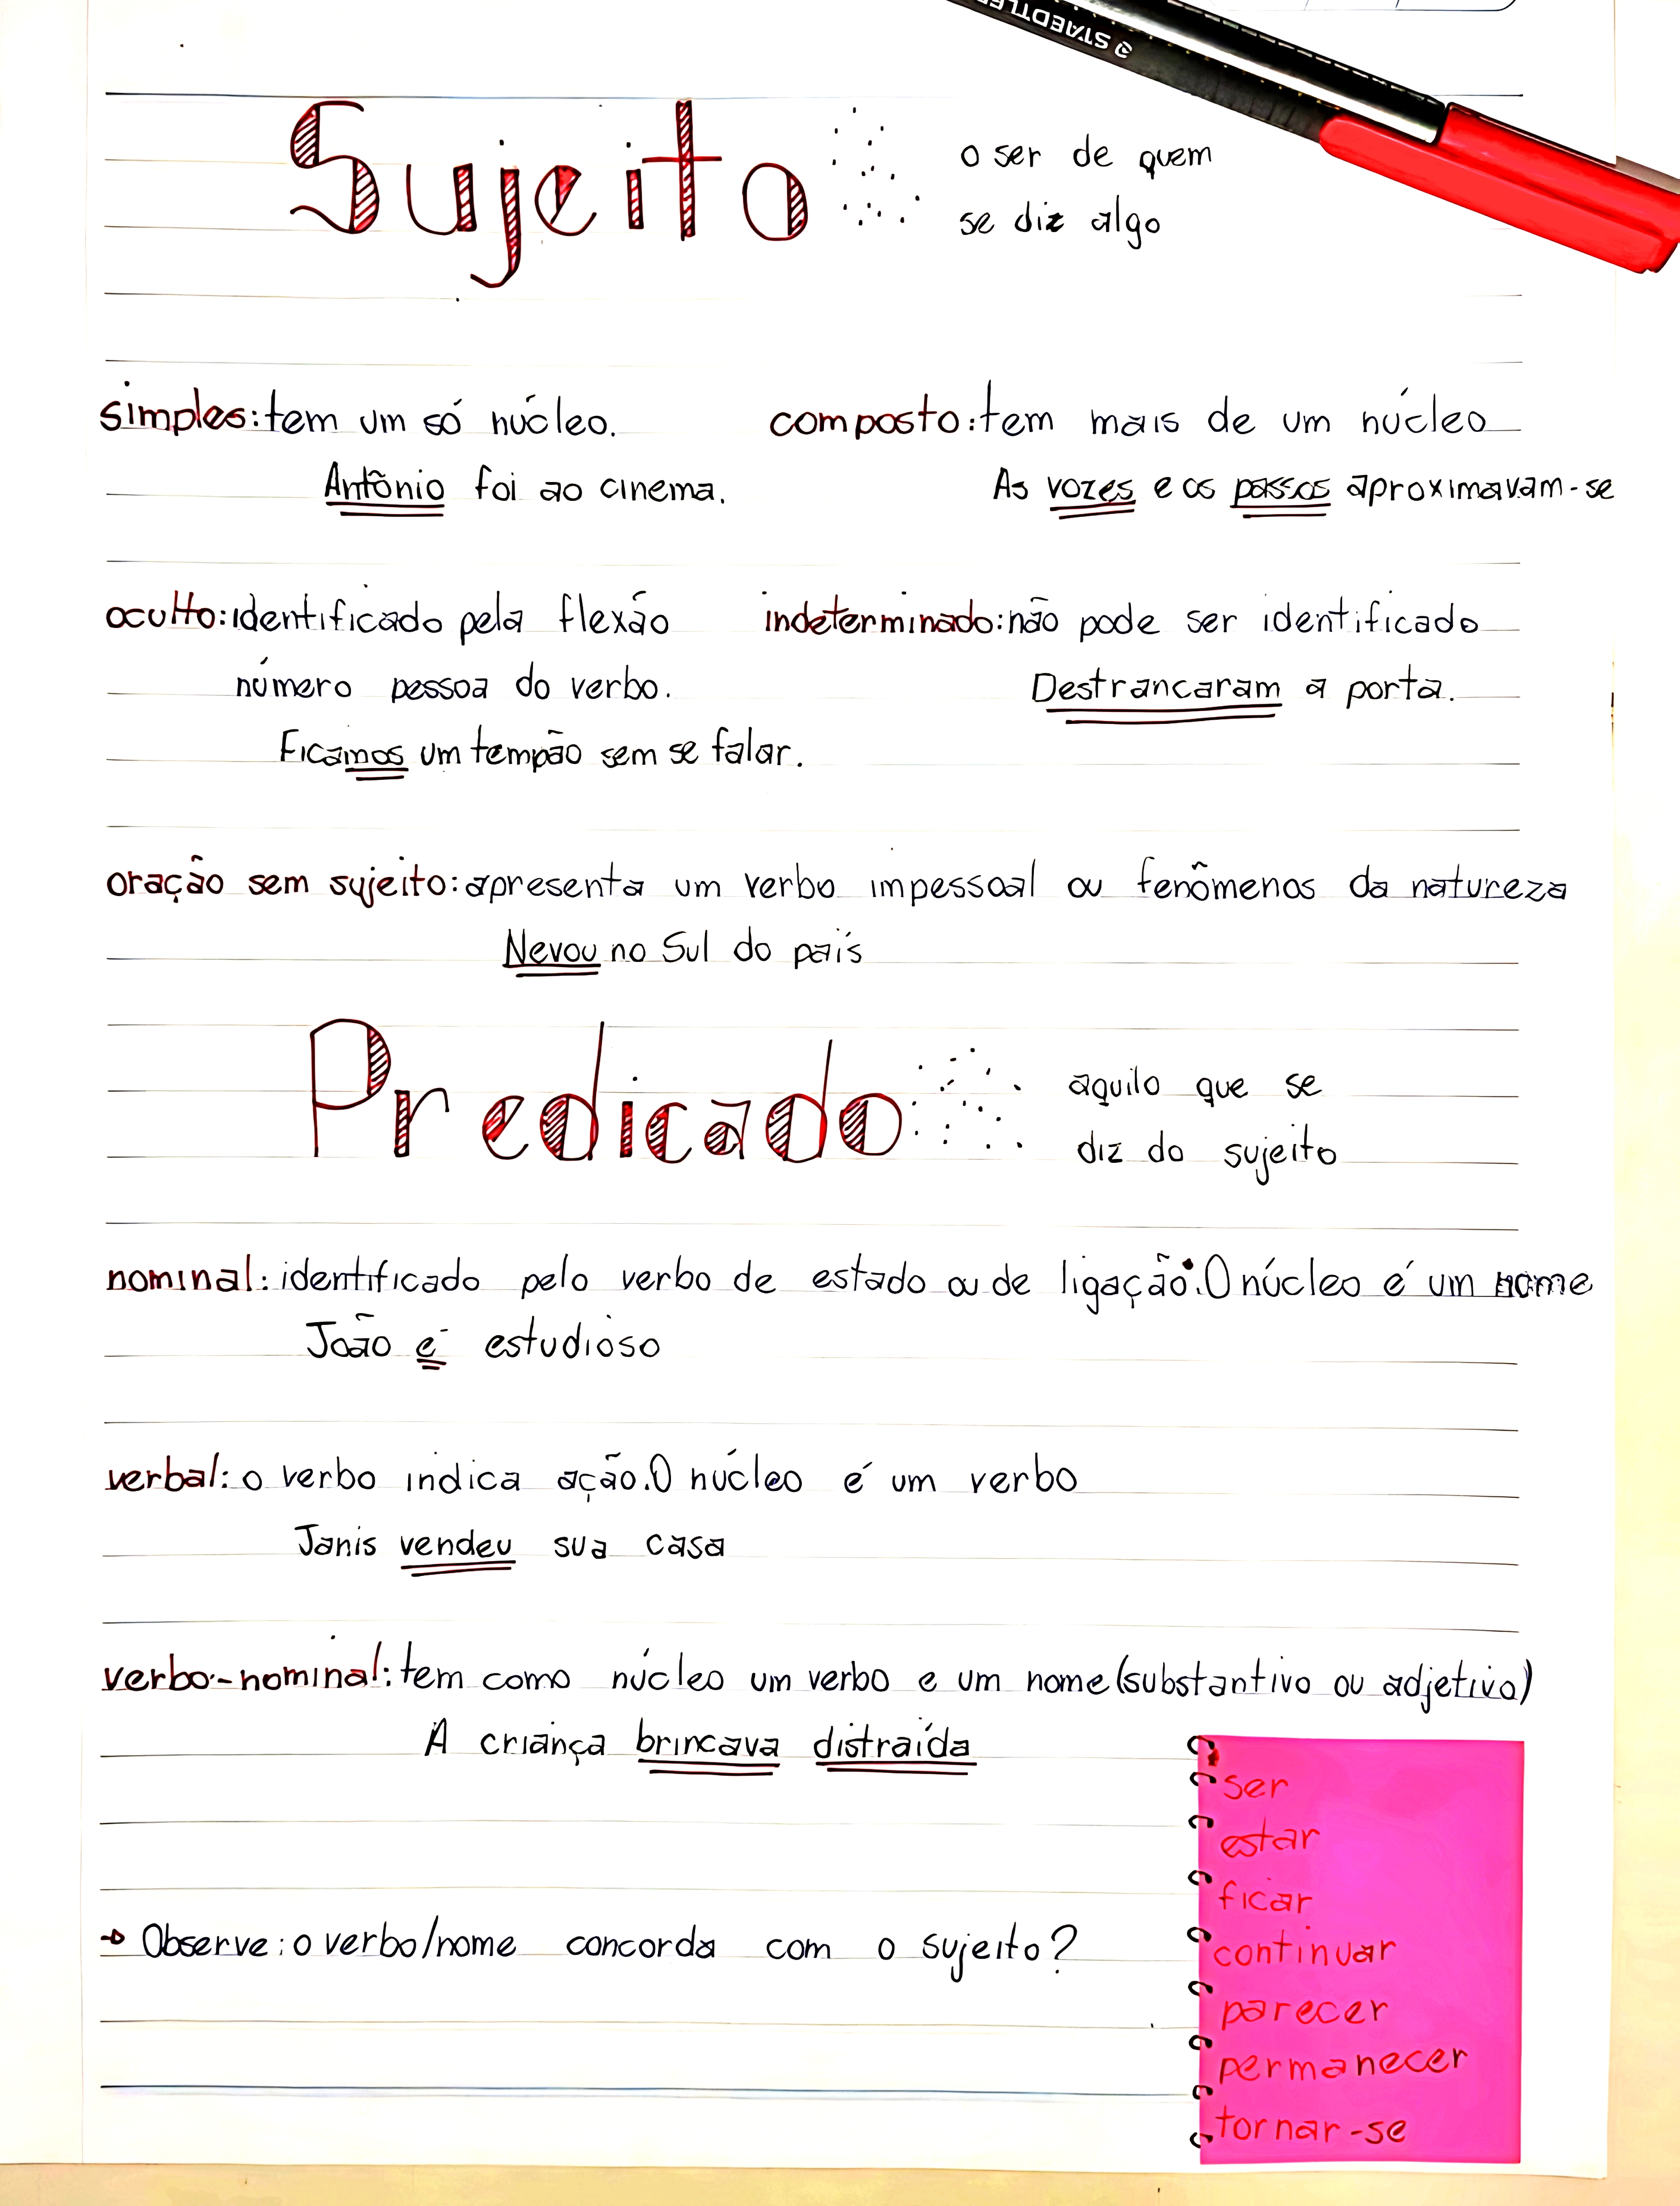 STAEDTLER
Sujeito
o ser de quem
se diz algo
simples: tem um só núcleo.
Antônio foi ao cinema.
composto: tem mais de um núcleo
As vozes e os passos aproximavam-se
oculto: identificado pela flexão
número pessoa do verbo.
Ficamos um tempão sem se falar.
indeterminado: não pode ser identificado
Destrancaram a porta.
oração sem sujeito: apresenta um verbo impessoal ou fenômenos da natureza
Nevou no Sul do país
Predicado
aquilo que se
diz do sujeito
nominal: identificado pelo verbo de estado ou de ligação. O núcleo é um nome
João é estudioso
verbal: o verbo indica ação. O núcleo é um verbo
Janis vendeu sua casa
verbo-nominal: tem como núcleo um verbo e um nome (substantivo ou adjetivo)
A criança brincava distraída
Observe: o verbo/nome concorda com o sujeito?
ser
estar
ficar
continuar
parecer
permanecer
tornar-se